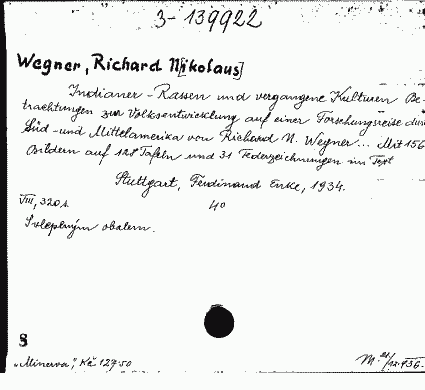 3-139922
Wegner, Richard N[ikolaus]
Indianer-Rassen und vergangene Kulturen Be-
trachtungen zur Volksentwicklung auf einer Forschungsreise durch
Süd- und Mittelamerika von Richard N. Wegner... Mit 156
Bildern auf 128 Tafeln und 31 Federzeichnungen im Text
Stuttgart, Ferdinand Enke, 1934.
VIII, 320 s. 4°
S vlepeným obalem.
8
"Minerva", Kč 127·50 M. 21/12.936.